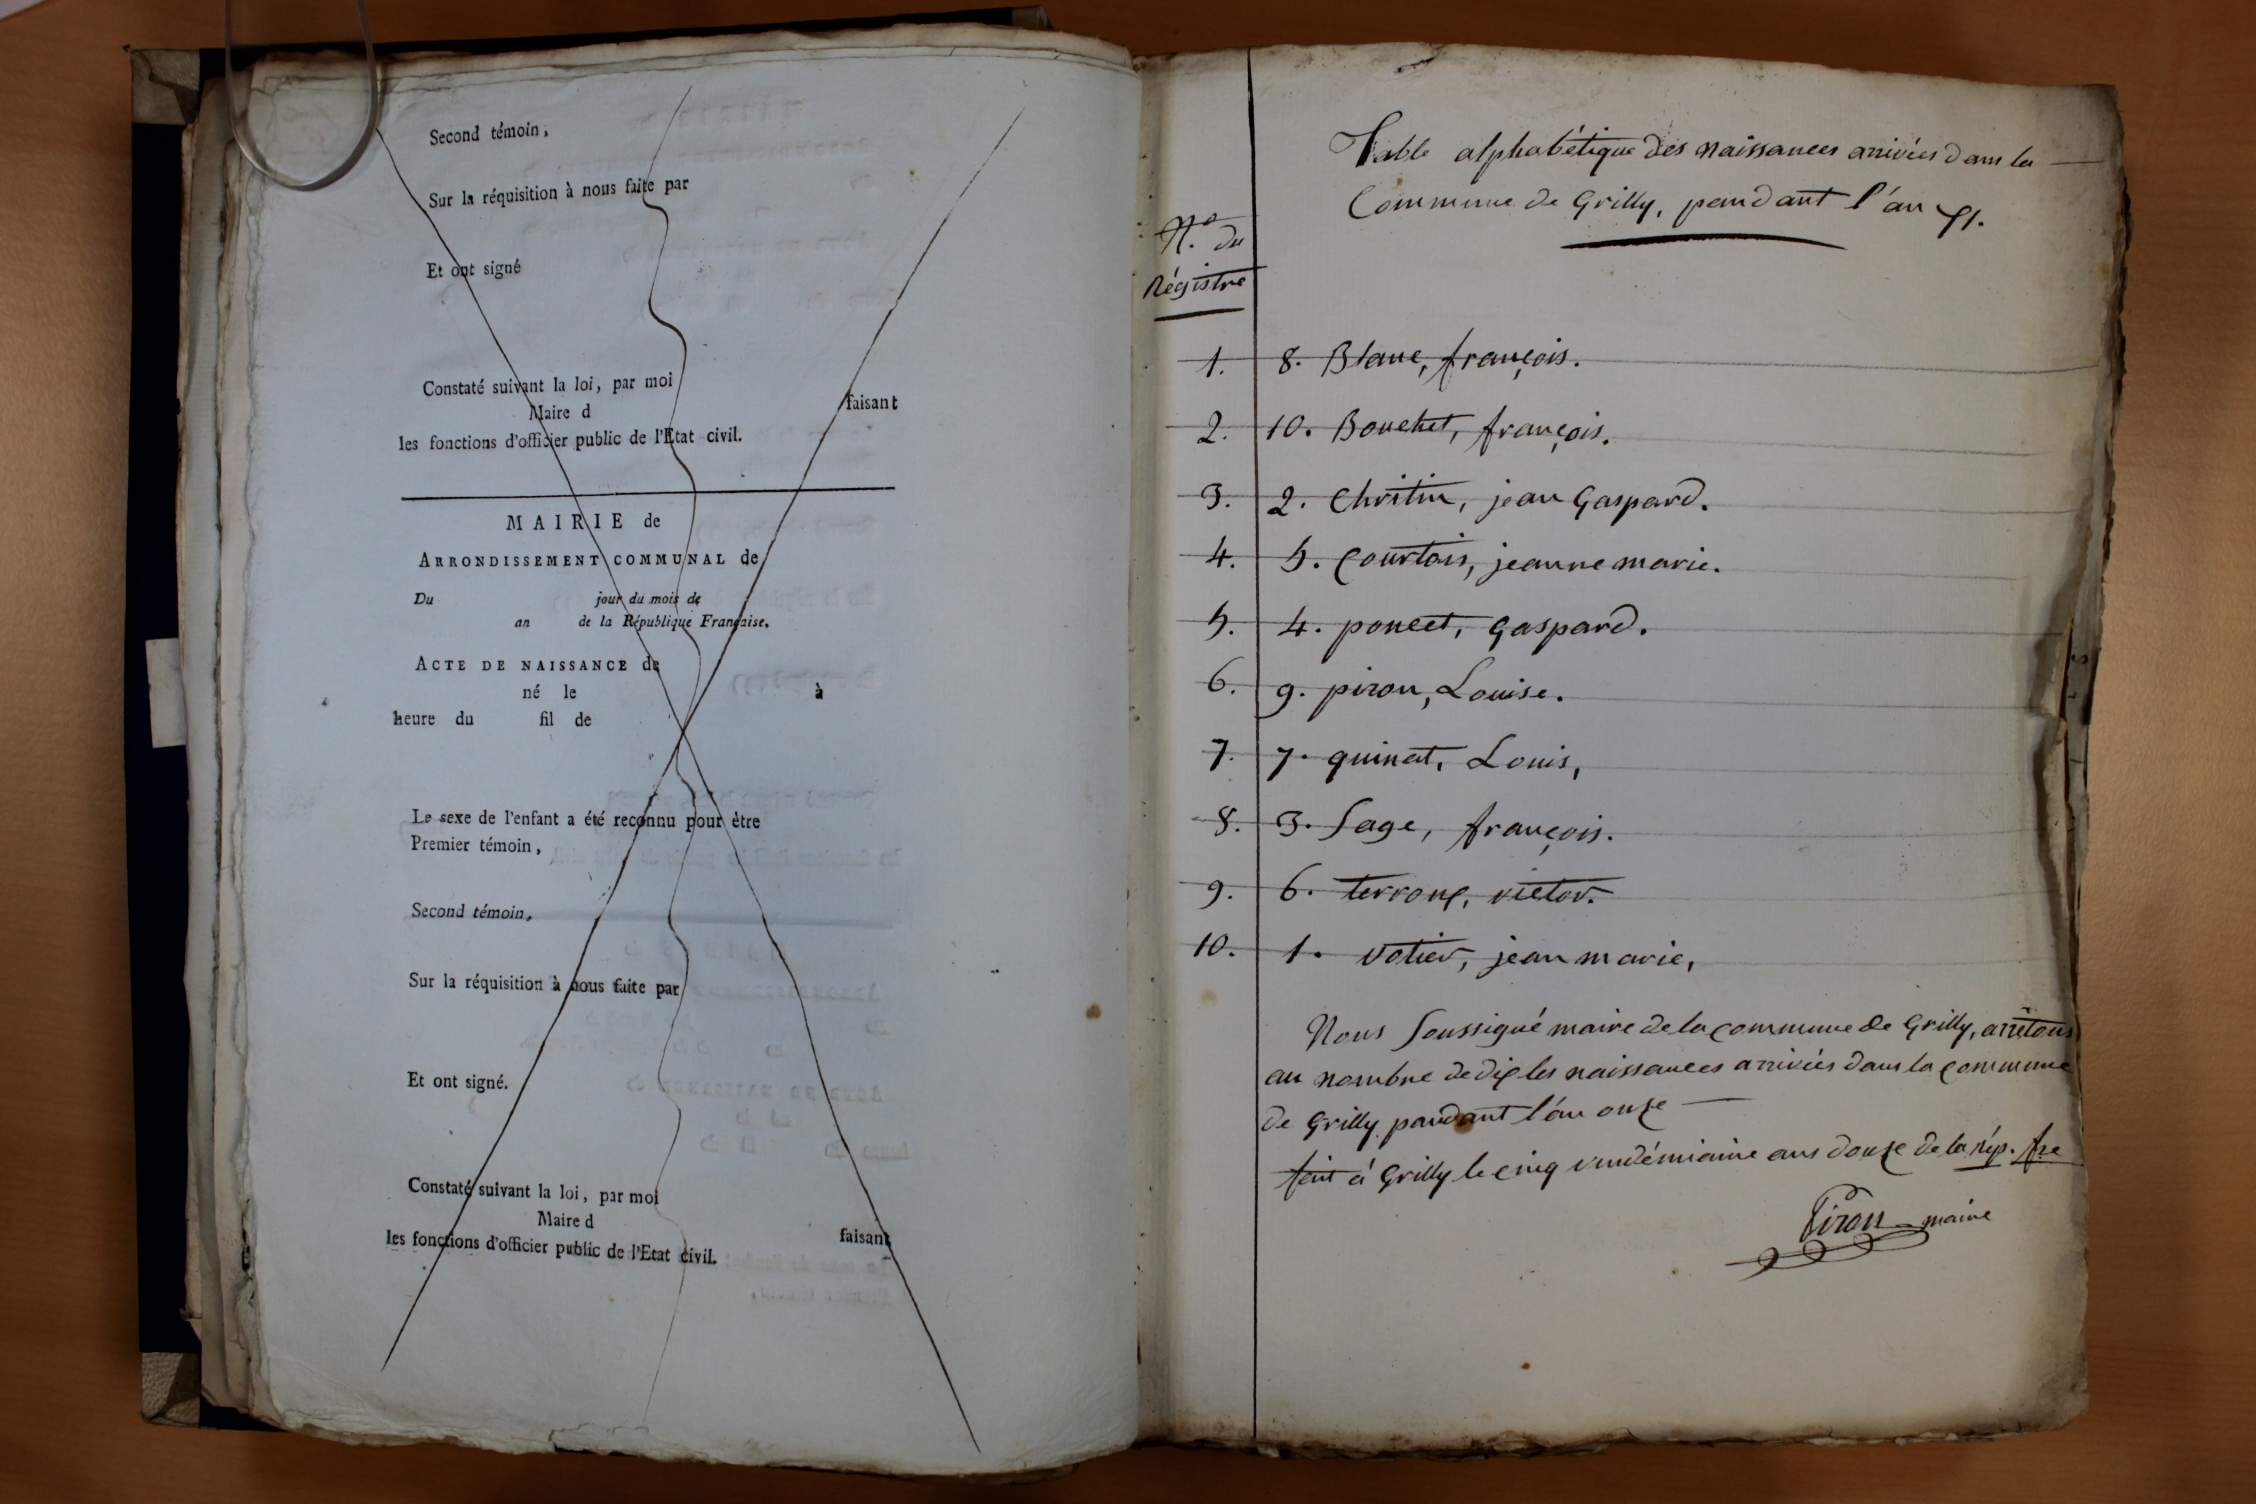 Second témoin,
Sur la réquisition à nous faite par
Et ont signé
Constaté suivant la loi, par moi
Maire d faisant
les fonctions d'officier public de l'Etat civil.
MAIRIE de
ARRONDISSEMENT COMMUNAL de
Du jour du mois de
an de la République Française.
ACTE DE NAISSANCE de
né le à
heure du fil de
Le sexe de l'enfant a été reconnu pour être
Premier témoin,
Second témoin,
Sur la réquisition à nous faite par
Et ont signé.
Constaté suivant la loi, par moi
Maire d faisant
les fonctions d'officier public de l'Etat civil.
Table alphabétique des naissances arrivées dans la
Commune de Grilly, pendant l'an XI.
N.o du
Régistre
1. 8. Blanc, françois.
2. 10. Bouchet, françois.
3. 2. Chritin, jean Gaspard.
4. 5. Courtois, jeanne marie.
5. 4. poncet, Gaspard.
6. 9. piron, Louise.
7. 7. quinet, Louis,
8. 3. Sage, françois.
9. 6. terroux, victor.
10. 1. votier, jean marie,
Nous Soussigné maire de la commune de Grilly, arrêtons
au nombre de dix les naissances arrivées dans la commune
de Grilly pandant l'an onze
fait à Grilly le cinq vendémiaire ans douze de la rép. fre
Piron maire